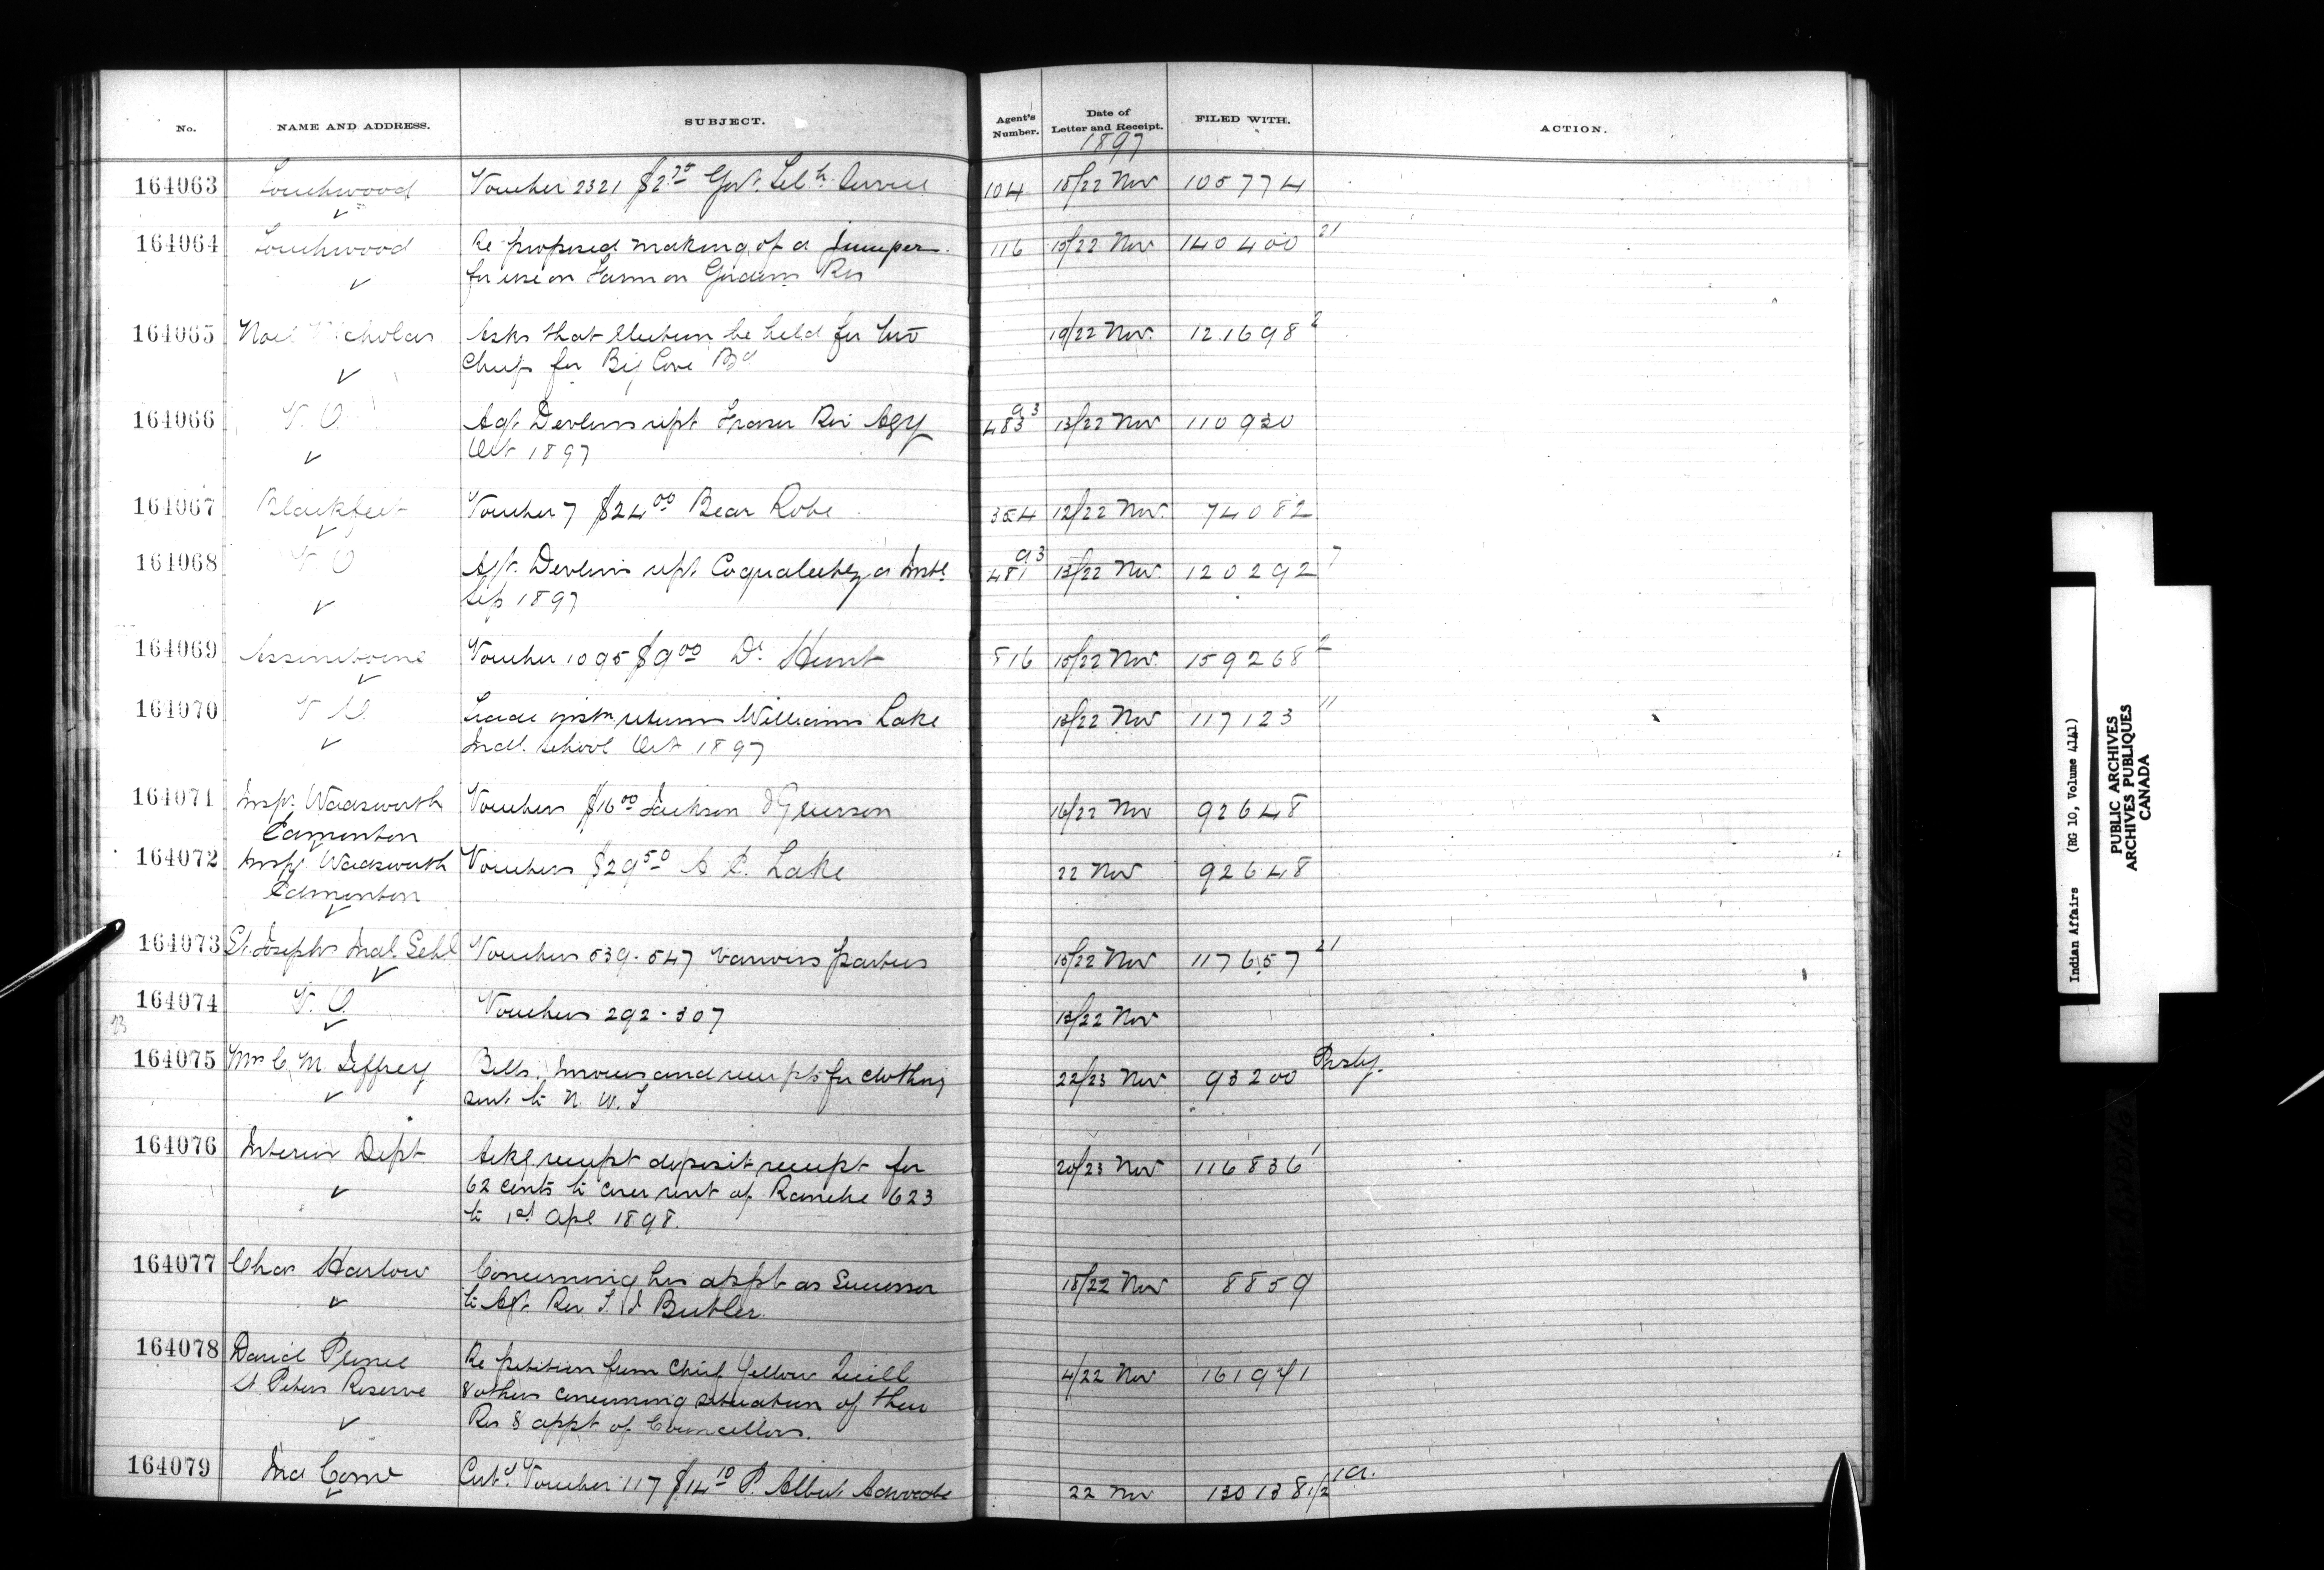 No. NAME AND ADDRESS. SUBJECT. Agent's Number. Date of Letter and Receipt. FILED WITH. ACTION.
1897
164063 Touchwood Voucher 2321 $2 75 Govt. Tel h. Service 104 15/22 Nov 105774
164064 Touchwood Re proposed making of a Jumper 116 15/22 Nov 140400 21
for use on Farm on Gordons Res
164065 Noel Nicholas Asks that election be held for two 19/22 Nov. 121698 2
Chiefs for Big Cove Bd
164066 V. O. Agt. Devlins rept Fraser Riv Agy 483 a3 13/22 Nov 110930
Oct 1897
164067 Blackfeet Voucher 7 $24 00 Bear Robe 354 12/22 Nov. 74082
164068 V O Agt. Devlins rept. Coqualeetza Inst. 481 a3 13/22 Nov. 120292 7
Sep 1897
164069 Assiniboine Voucher 1095 $9 00 Dr. Hunt 816 15/22 Nov. 159268 2
164070 V O. Trade instn returns Williams Lake 13/22 Nov 117123 11
Indl. School Oct 1897
164071 Insp. Wadsworth Vouchers $16 00 Jackson & Grierson 16/22 Nov 92648
Edmonton
164072 Insp. Wadsworth Vouchers $29 50 A C. Lake 22 Nov 92648
Edmonton
164073 St. Josephs Indl. Schl Vouchers 539-547 various parties 15/22 Nov 117657 21
164074 V. O. Vouchers 292-307 13/22 Nov
164075 Mrs C. M. Jeffrey Bills, Invoices and receipts for clothing 22/23 Nov 93200 Prsby.
sent to N. W. T
164076 Interior Dept Ackg receipt deposit receipt for 20/23 Nov 116836 1
62 cents to cover rent of Ranche 623
to 1st Apl 1898.
164077 Chas Harlow Concerning his appt as Successor 18/22 Nov 8859
to Agt. Rev T. J Butler.
164078 David Prince Re petition from Chief Yellow Quill 4/22 Nov 161941
St Peters Reserve & others concerning situation of their
Res & appt of Councillors.
164079 Ind Comr Certd. Voucher 117 $14 10 P. Albert Advocate 22 Nov 130138 1/2 1a.
Indian Affairs (RG 10, Volume 4141)
PUBLIC ARCHIVES
ARCHIVES PUBLIQUES
CANADA